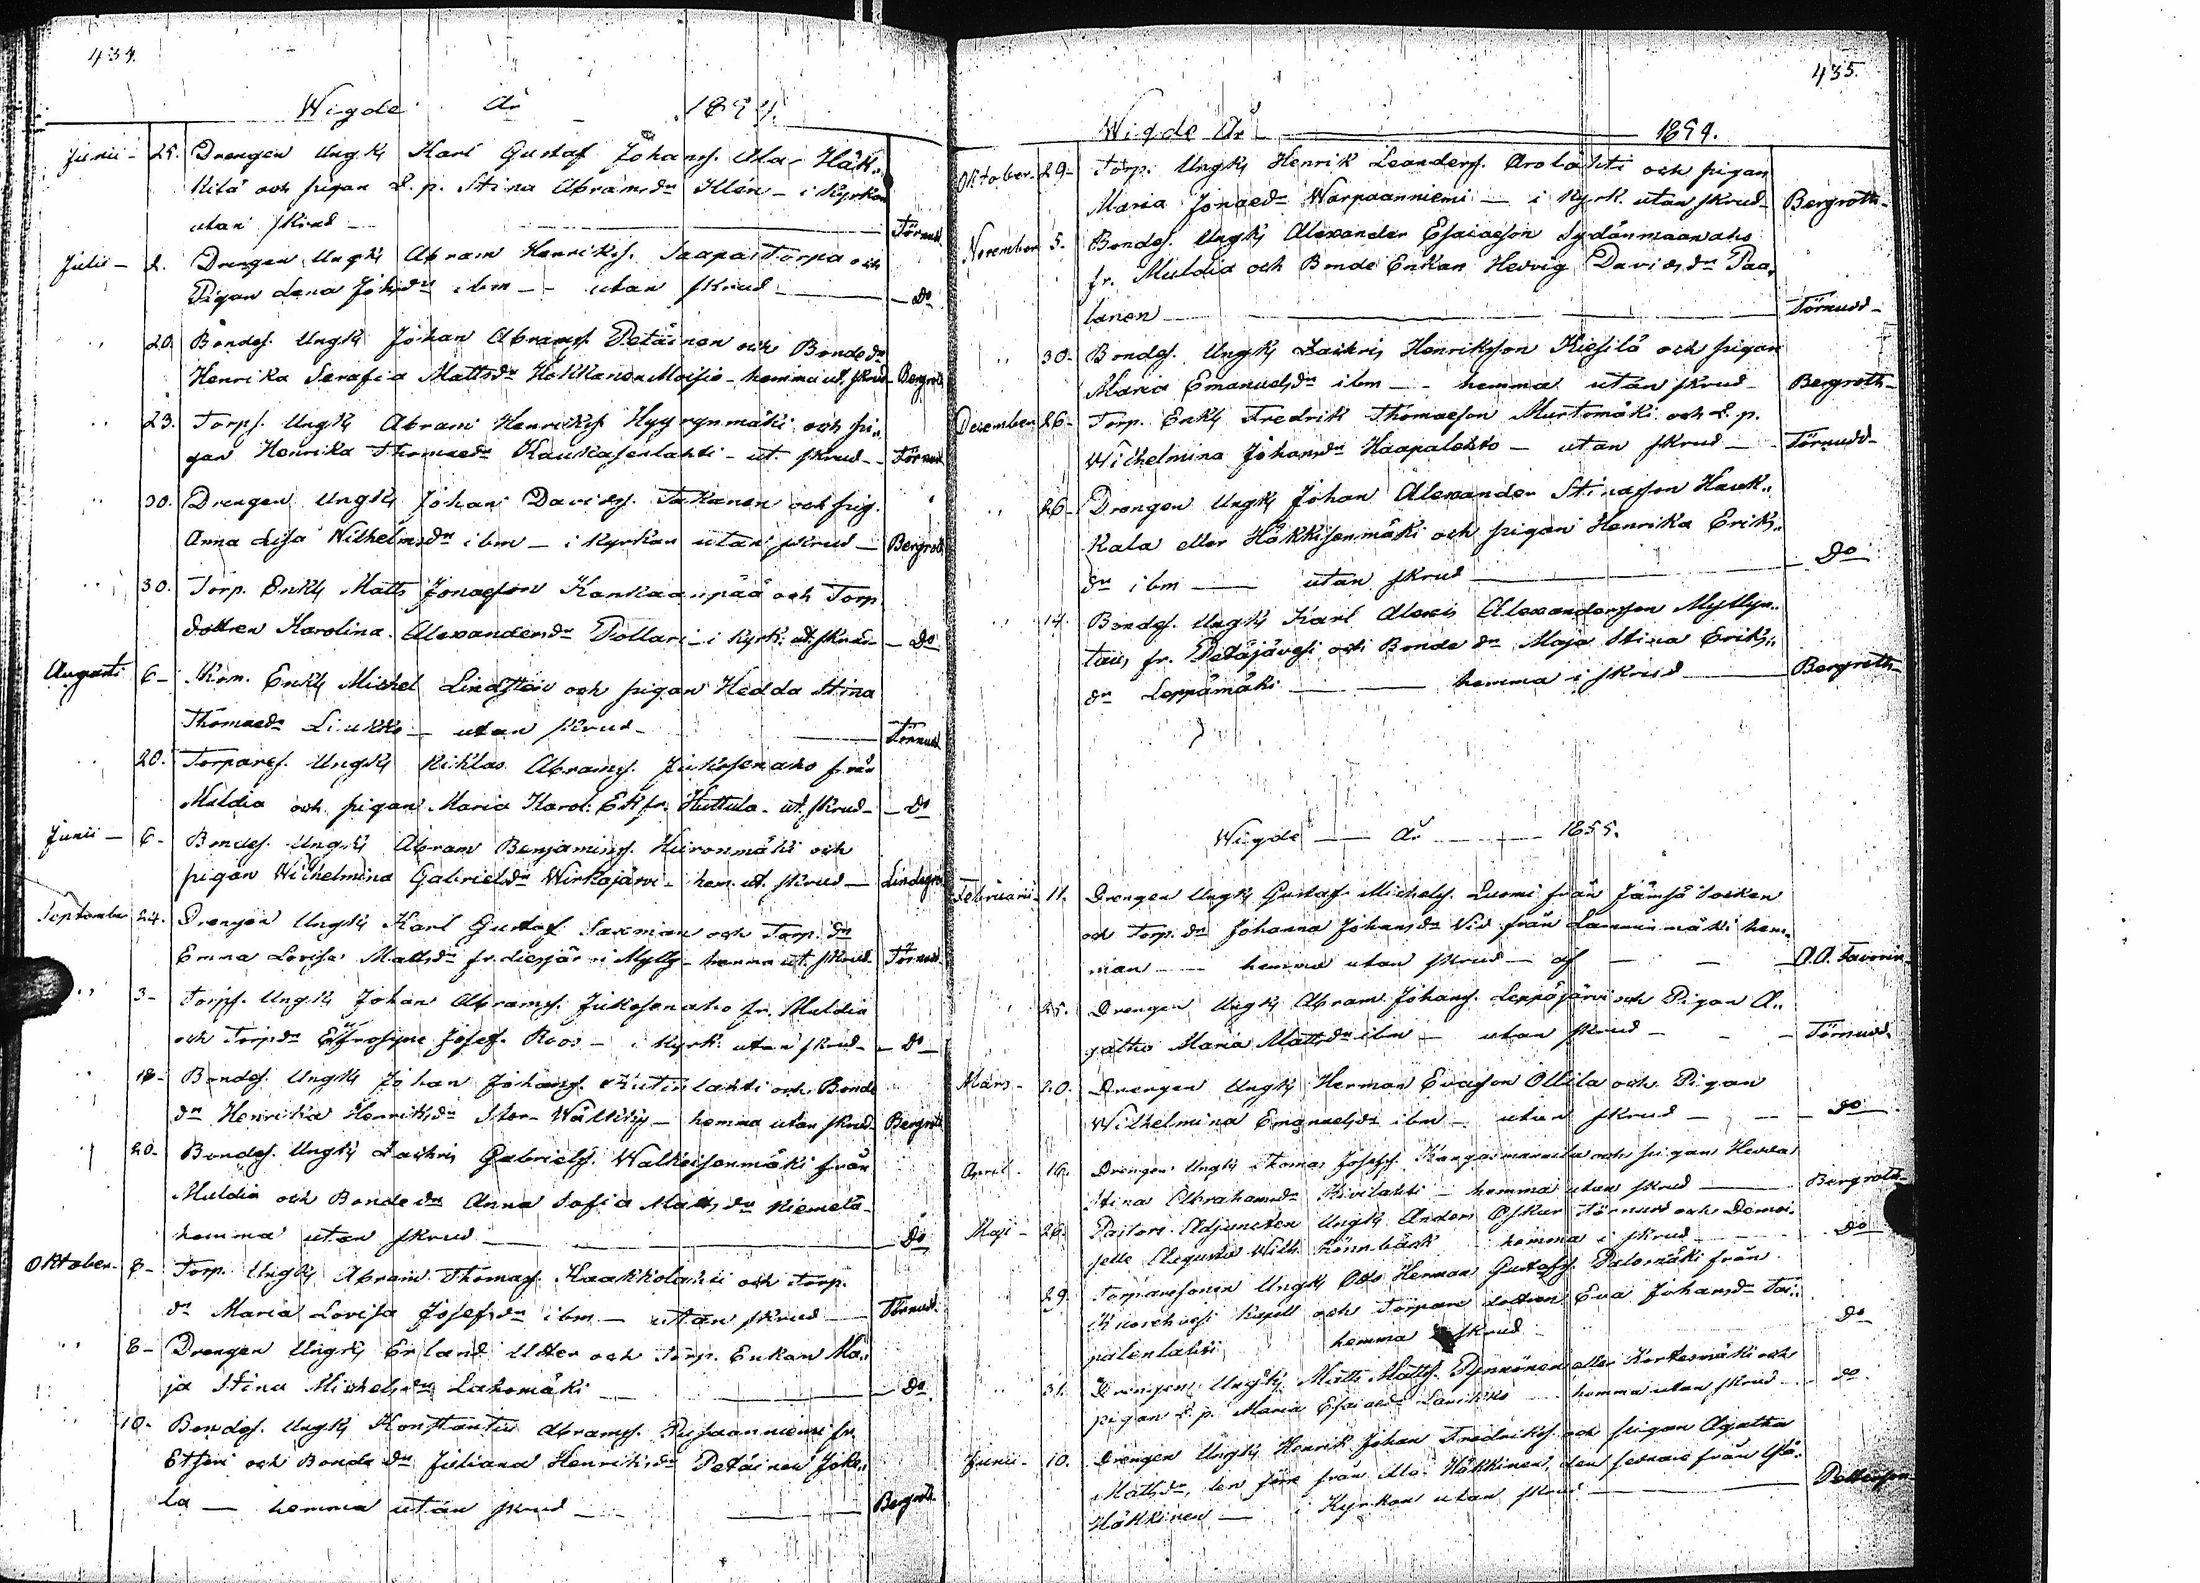 434.
Wigde År 1854.
Junii - 25. Drengen Ungk Karl Gustaf Johanss. Ala- Häk„
kilä och pigan L. p. Stina Abramsdr Illén - i Kyrkan
utan skrud - Törnudd
Julii - 2. Drengen Ungk Abram Henrikss. Saapas Torpa och
Pigan Lena Johsdr ibm - utan skrud - Do
" 20. Bondes. Ungk Johan Abramss. Petäinen och Bondedr
Henrika Serafia Mattsdr Hokkanen Moisio - hemma ut. skrud - Bergroth
" 23. Torps. Ungk Abram Henrikss. Hyyrynmäki och pi„
gan Henrika Thomaedr Kaukasenlahti - ut. skrud - Törnudd
" 30. Drengen Ungk Johan Davidss. Takanen och pig.
Anna Lisa Wilhelmsdr ibm - i Kyrkan utan skrud - Bergroth
" 30. Torp. Enkl Matts Jonaesson Kankaanpää och Torp.
dottren Karolina Alexandersdr Pollari - i Kyrk. ut. skrud - Do
Augusti 6 - Enkl Michel Lindsten och pigan Hedda Stina
Thomaedr Liukko - utan skrud - Törnudd
" 20. Torpares. Ungk Niklas Abramss. Jukosenaho från
Muldia och pigan Maria Karol. Ek fr. Huttula - ut. skrud - Do
Junii - 6 - Bondes. Ungk Abram Benjamins. Hiironmäki och
pigan Wilhelmina Gabrielsdr Wirkajärvi - hem. ut. skrud - Lindegren
September 24. Drengen Ungk Karl Gustaf Saxman och Torp. dr
Emma Lovisa Mattsdr fr. Liesjärvi Mylly - hemma ut. skrud - Törnudd
" 3 - Torps. Ungk Johan Abramss. Jukosenaho fr. Muldia
och Torpdr Eufrosyne Josefs. Roos - i Kyrk. utan skrud - Do
" 18 - Bondes. Ungk Johan Johanss. Kutinlahti och Bonde
dr Henrika Henriksdr Stor- Wälkkilä - hemma utan skrud - Bergroth
" 20 - Bondes. Ungk Zachris Gabrielss. Walkeisenmäki från
Muldia och Bonde dr Anna Sofia Mattsdr Niemelä -
hemma utan skrud - Do
Oktober - 8 - Torp. Ungk Abram Thomass. Haakkolahti och Torp.
dr Maria Lovisa Josefsdr ibm - utan skrud - Törnudd
" 8 - Drengen Ungk Erland Utter och Torp. Enkan Ma„
ja Stina Michelsdr Lahomäki - Do
10 - Bondes. Ungk Konstantin Abramss. Pusaanniemi fr.
Etseri och Bonde dr Juliana Henriksdr Petäinen Joke„
la - hemma utan skrud - Bergroth
435.
Wigde År 1854.
Oktober - 29 - Torp. Ungk Henrik Leanders. Arolahti och pigan
Maria Jonaedr Warpaanniemi - i Kyrk. utan skrud - Bergroth
November 5. Bondes. Ungk Alexander Esaiaeson Sydänmaanaho
fr. Muldia och Bonde Enkan Hedvig Davidsdr Paa„
lanen - Törnudd
" 30 - Bondes. Ungk Zachris Henriksson Kiesilä och pigan
Maria Emanuelsdr ibm - hemma utan skrud - Bergroth
December 26 - Torp. Enkl Fredrik Thomaeson Murtomäki och L. p.
Wilhelmina Johansdr Haapalehto - utan skrud - Törnudd
" 26 - Drengen Ungk Johan Alexander Stinasson Hauk„
kala eller Häkkisenmäki och pigan Henrika Eriks„
dr ibm - utan skrud - Do
" 14. Bondes. Ungk Karl Alexis Alexandersson
fr. Petäjävesi och Bonde dr Maja Stina Eriks„
dr Leppämäki - hemma i skrud - Bergroth
Wigde År 1855.
Februarii - 11. Drengen Ungk Gustaf Michelss. Luomi från Jämsä Socken
och Torp. dr Johanna Johansdr från Lamminmäki hem„
man - hemma utan skrud - af - Favorin
" 25. Drengen Ungk Abram Johanss. Leppäjärvi och Pigan A„
gatha Maria Mattsdr ibm - utan skrud - Törnudd
Mars - 20. Drengen Ungk Herman Evasson Ollila och Pigan
Wilhelmina Emanuelsdr ibm - utan skrud - Do
April - 16. Drengen Ungk Thomas Josefss. Kangasmannila och pigan Hedda
Stina Abrahamsdr Kivilahti - hemma utan skrud - Bergroth
Maji - 26. Pastors Adjuncten Ungk Anders Oskar Törnudd och Demoi„
selle Augusta Wilh. Rönnbäck hemma i skrud - Do
29. Torparesonen Ungk Otto Herman Gustafss. Palomäki från
Keuru Kapell och Torpare dottren Eva Johansdr
hemma i skrud - Do
" 31. Drengen Ungk Matts Mattss. Pynnönen eller Kortesmäki och
pigan L. p. Maria Esaiaedr Lavikko - hemma utan skrud - Do
Junii - 10. Drengen Ungk Henrik Johan Fredrikss. och pigan Agatha
Mattsdr, den förre från Ala- Häkkinen, den senare från Yli-
Häkkinen - i Kyrkan utan skrud - Pettersson